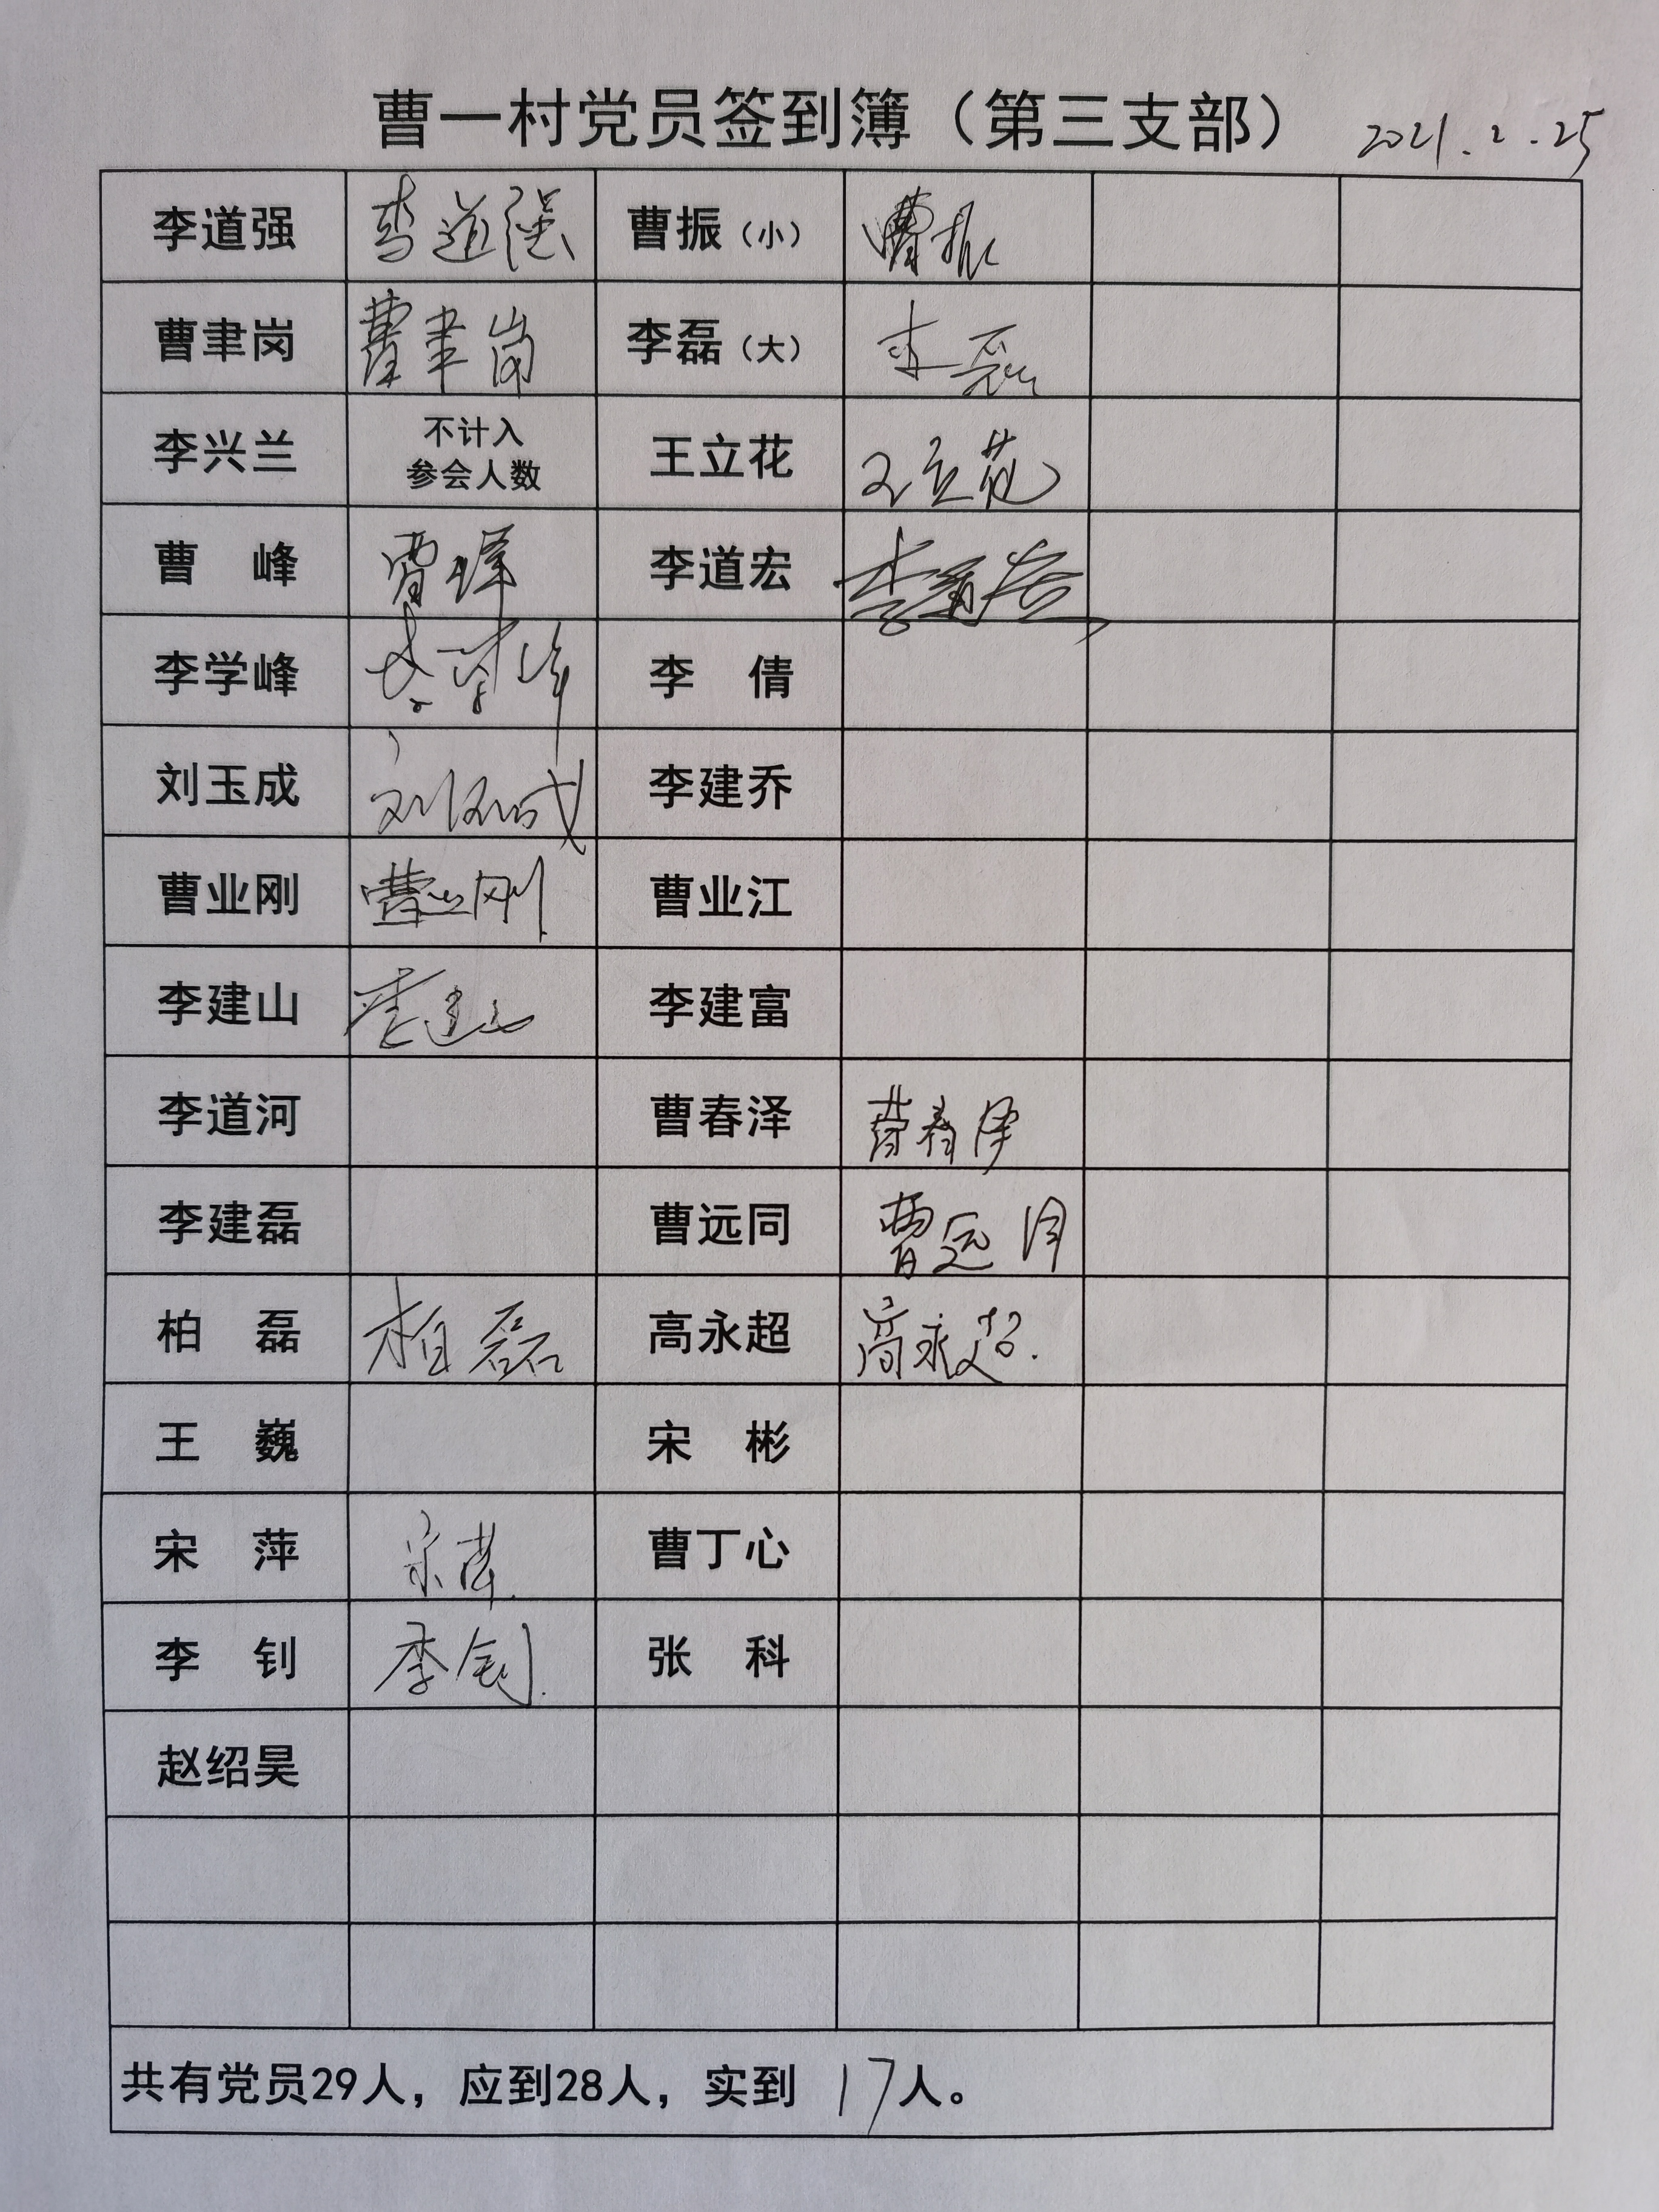 曹一村党员签到簿（第三支部） 2021.2.25
李道强 李道强 曹振（小） 曹振
曹聿岗 曹聿岗 李磊（大） 李磊
李兴兰 不计入 王立花 王立花
参会人数
曹 峰 曹峰 李道宏 李道宏
李学峰 李学峰 李 倩
刘玉成 刘玉成 李建乔
曹业刚 曹业刚 曹业江
李建山 李建山 李建富
李道河 曹春泽 曹春泽
李建磊 曹远同 曹远同
柏 磊 柏磊 高永超 高永超.
王 巍 宋 彬
宋 萍 宋萍. 曹丁心
李 钊 李钊. 张 科
赵绍昊
共有党员29人，应到28人，实到 17人。